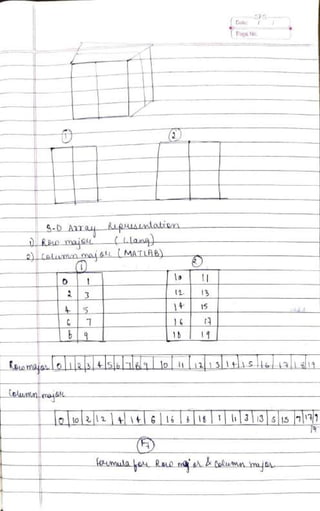 Date: / /
Page No.
① ②
3-D Array Representation
1) Row major (Llang)
2) Column major (MATLAB)
① ②
0 1 10 11
2 3 12 13
4 5 14 15
6 7 16 17
8 9 18 19
Row major 0 1 2 3 4 5 6 7 8 9 10 11 12 13 14 15 16 17 18 19
Column major
0 10 2 12 4 14 6 16 8 18 1 11 3 13 5 15 7 17 9
19
Formula for Row major & Column major